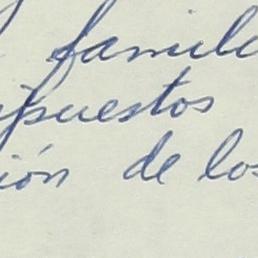 famili
puestos
ión de los